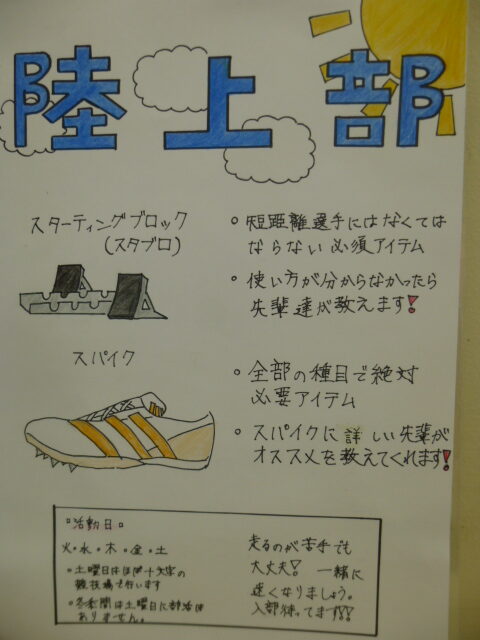 陸上部
スターティングブロック
(スタブロ)
○ 短距離選手にはなくては
ならない必須アイテム
○ 使い方が分からなかったら
先輩達が教えます!
スパイク
○ 全部の種目で絶対
必要アイテム
○ スパイクに詳しい先輩が
オススメを教えてくれます!
○活動日○
火・水・木・金・土
・土曜日はほぼ十文字の
競技場で行います
・冬季間は土曜日に部活は
ありません。
走るのが苦手でも
大丈夫! 一緒に
速くなりましょう。
入部待ってます!!!